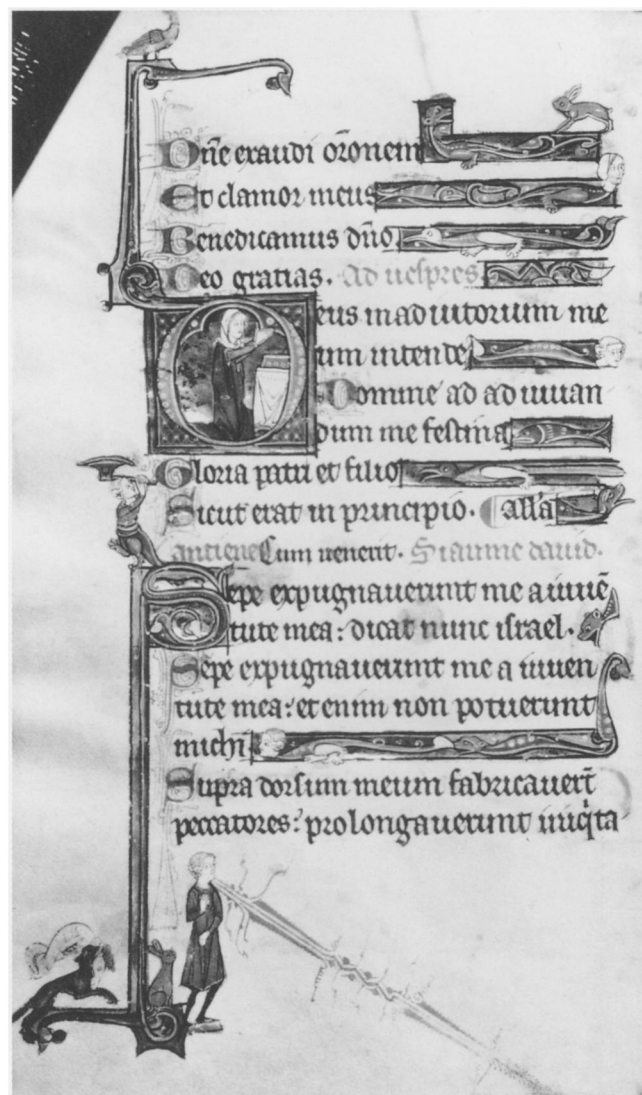 Dn̄e exaudi or̄onem
Et clamor meus
Benedicamus dn̄o
Deo gratias. Ad uespres
Deus in ad iutorium me
um intende
Domine ad ad iuuan
dum me festina
Gloria patri et filio
Sicut erat in principio. all'a
antiene Cum uenerit. Siaume dauid.
Sepe expugnauerunt me a iuuē
tute mea: dicat nunc israel.
Sepe expugnauerunt me a iuuen
tute mea: et enim non potuerunt
michi
Supra dorsum meum fabricauerт̄
peccatores: prolongauerunt iniq̇ta